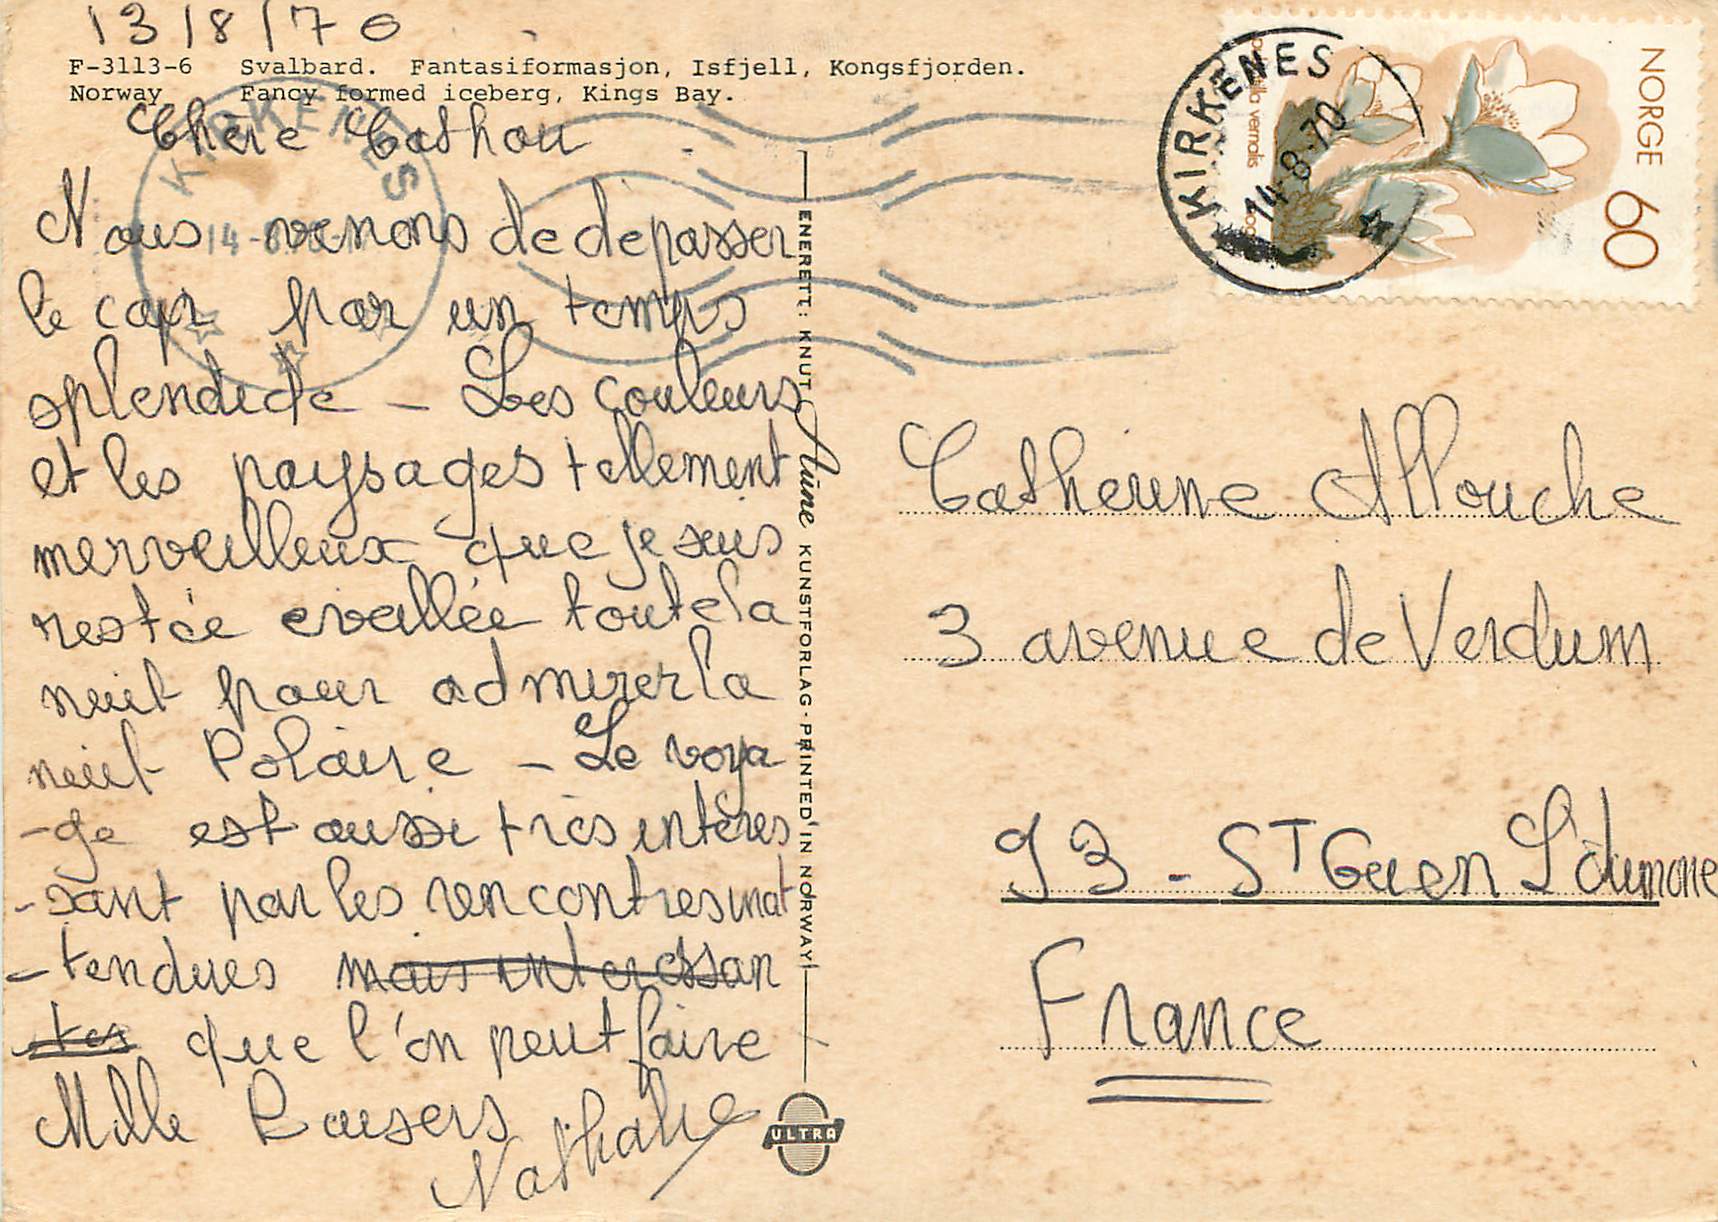 13/8/70
F-3113-6 Svalbard. Fantasiformasjon, Isfjell, Kongsfjorden.
Norway Fancy formed iceberg, Kings Bay.
Chère Cathou
Nous venons de depasser
le cap par un temps
splendide - Les couleurs
et les paysages tellement
merveilleux que je suis
restée evallée toute la
nuit pour admirer la
nuit Polaire - Le voya
-ge est aussi très intéres
-sant par les rencontres inat
-tendues mais interessan
-tes que l'on peut faire
Mille Baisers
Nathalie
ENERETT: KNUT Aune KUNSTFORLAG - PRINTED IN NORWAY
ULTRA
KIRKENES
14-8
KIRKENES
14-8-70
NORGE
60
vernalis
Catherine Allouche
3 avenue de Verdum
93 - ST Guen L'aumone
France